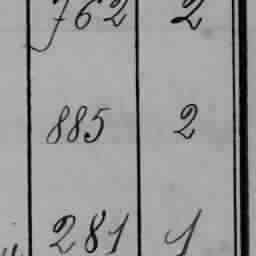 762 2
885 2
281 1